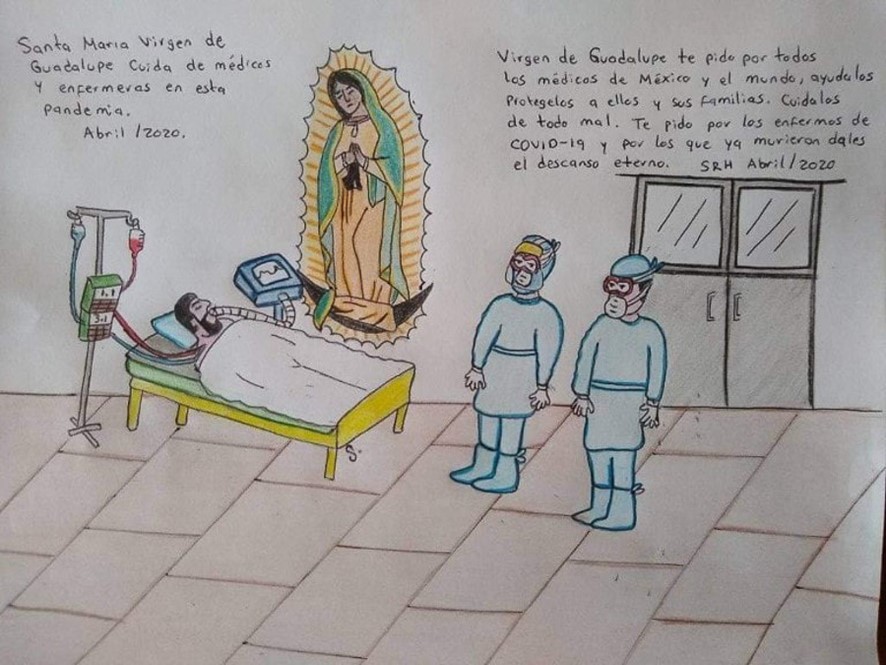 Santa Maria Virgen de
Guadalupe Cuida de médicos
y enfermeras en esta
pandemia.
Abril /2020.
Virgen de Guadalupe te pido por todos
los médicos de México y el mundo, ayudalos
Protegelos a ellos y sus familias. Cuidalos
de todo mal. Te pido por los enfermos de
COVID-19 y por los que ya murieron dales
el descanso eterno. SRH Abril/2020